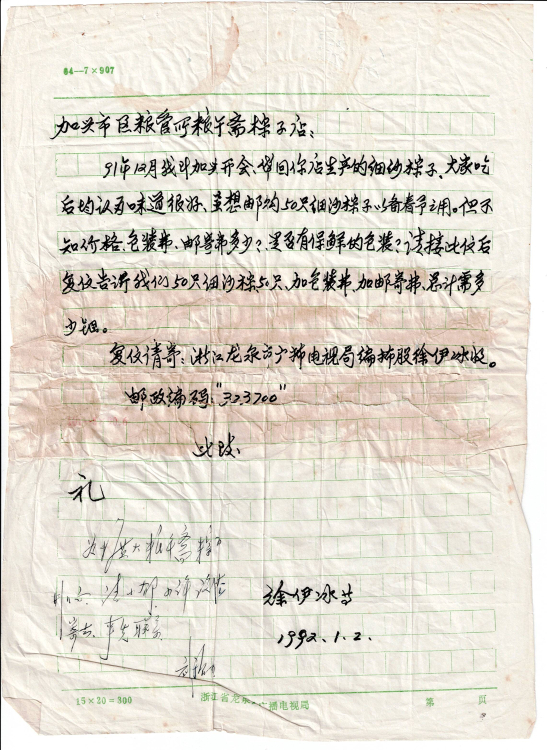 84—7×907
加兴市区粮管所粮午斋粽子店：
91年12月我叶加兴开会、带回你店生产的细沙粽子、大家吃
后均认为味道很好、至想邮购50只细沙粽子以备春节之用。但不
知价格、包装弗、邮寄弗多少？是否有保鲜的包装？请接此信后
复信告讲我们50只细沙粽50只、加包装弗、加邮寄弗、总计需多
少钱。
复信请寄：浙江龙泉市广播电视局编播股徐伊冰收。
邮政编码："323700"
此致、
礼
徐伊冰
1992.1.2.
15×20=300
浙江省龙泉 广播电视局
第 页